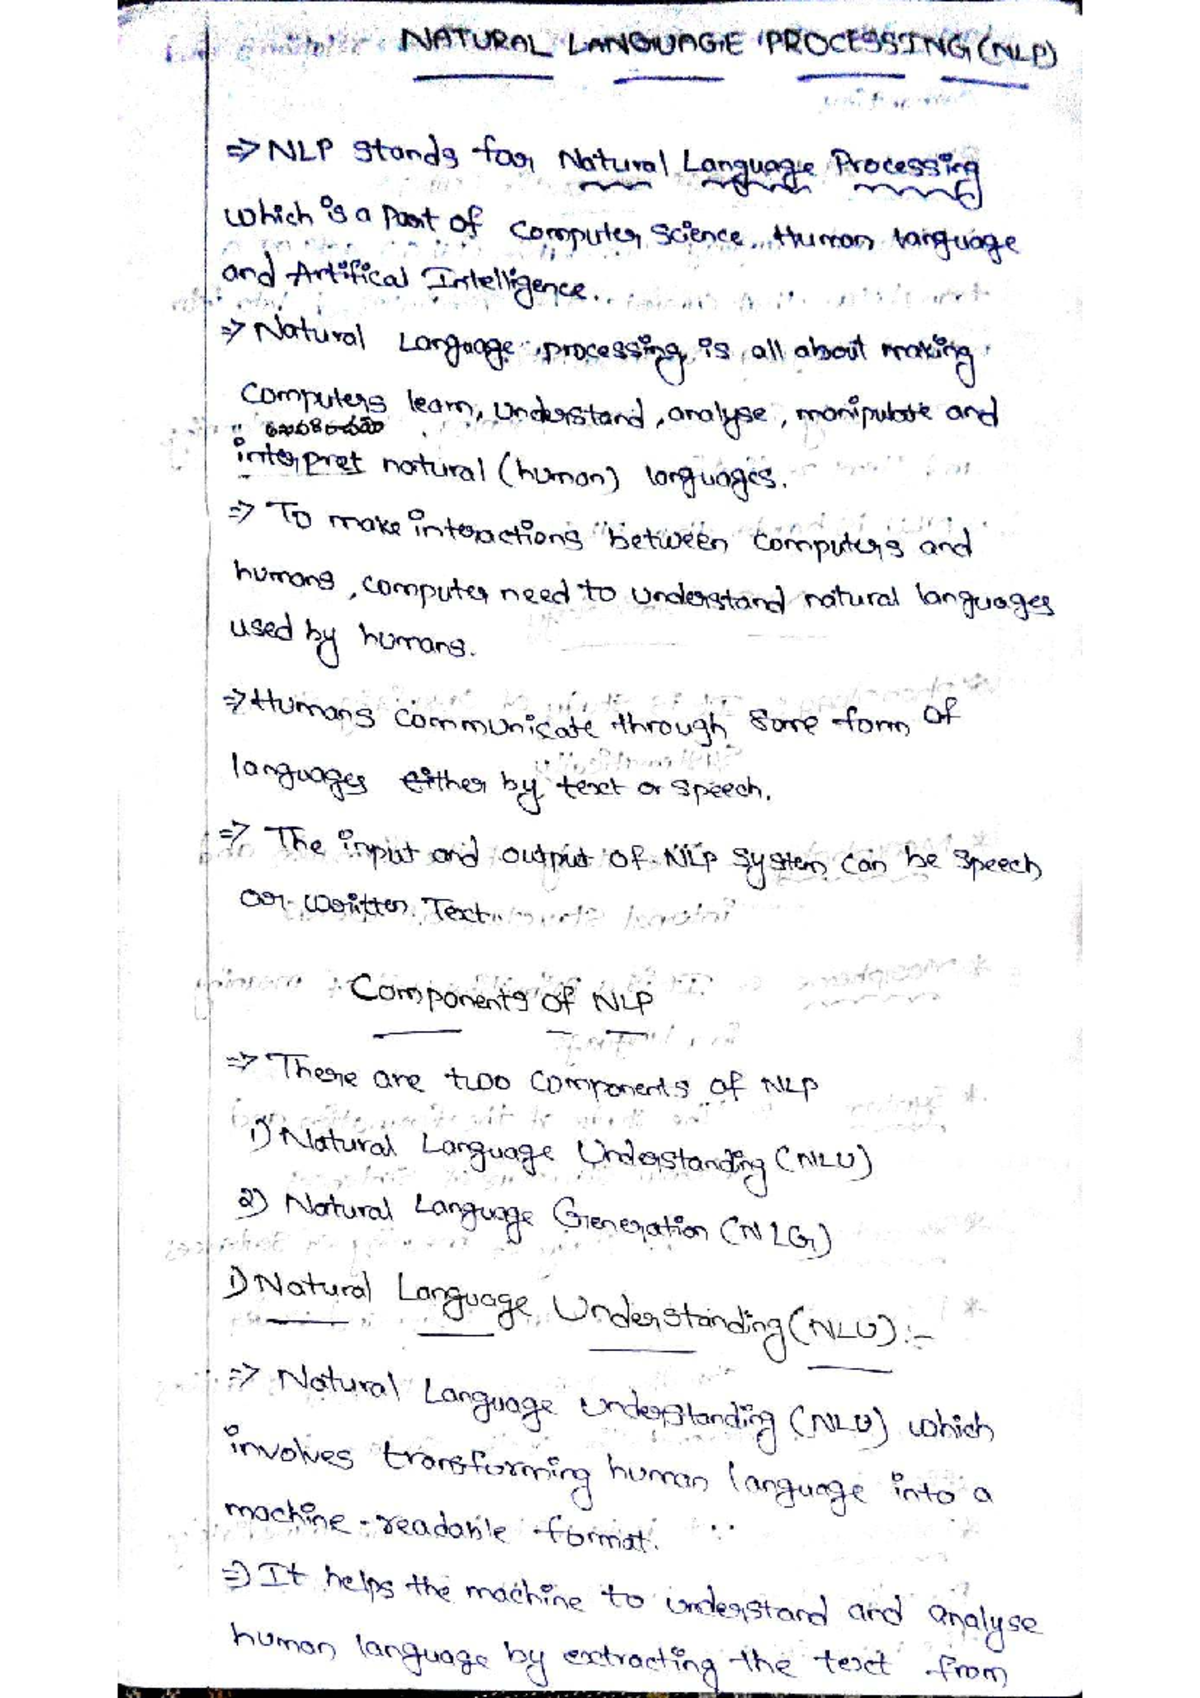 NATURAL LANGUAGE PROCESSING (NLP)
=> NLP stands for Natural Language Processing
which is a Part of Computer Science, Human language
and Artifical Intelligence.
=> Natural Language processing is all about making
Computers learn, understand, analyse, manipulate and
interpret natural (human) languages.
=> To make interactions between computers and
humans, computer need to understand natural languages
used by humans.
=> Humans communicate through some form of
languages either by text or speech.
=> The input and output of NLP system can be speech
or written Text.
Components of NLP
=> There are two components of NLP
1) Natural Language Understanding (NLU)
2) Natural Language Generation (NLG)
1) Natural Language Understanding (NLU) :-
=> Natural Language understanding (NLU) which
involves transforming human language into a
machine-readable format.
=> It helps the machine to understand and analyse
human language by extracting the text from